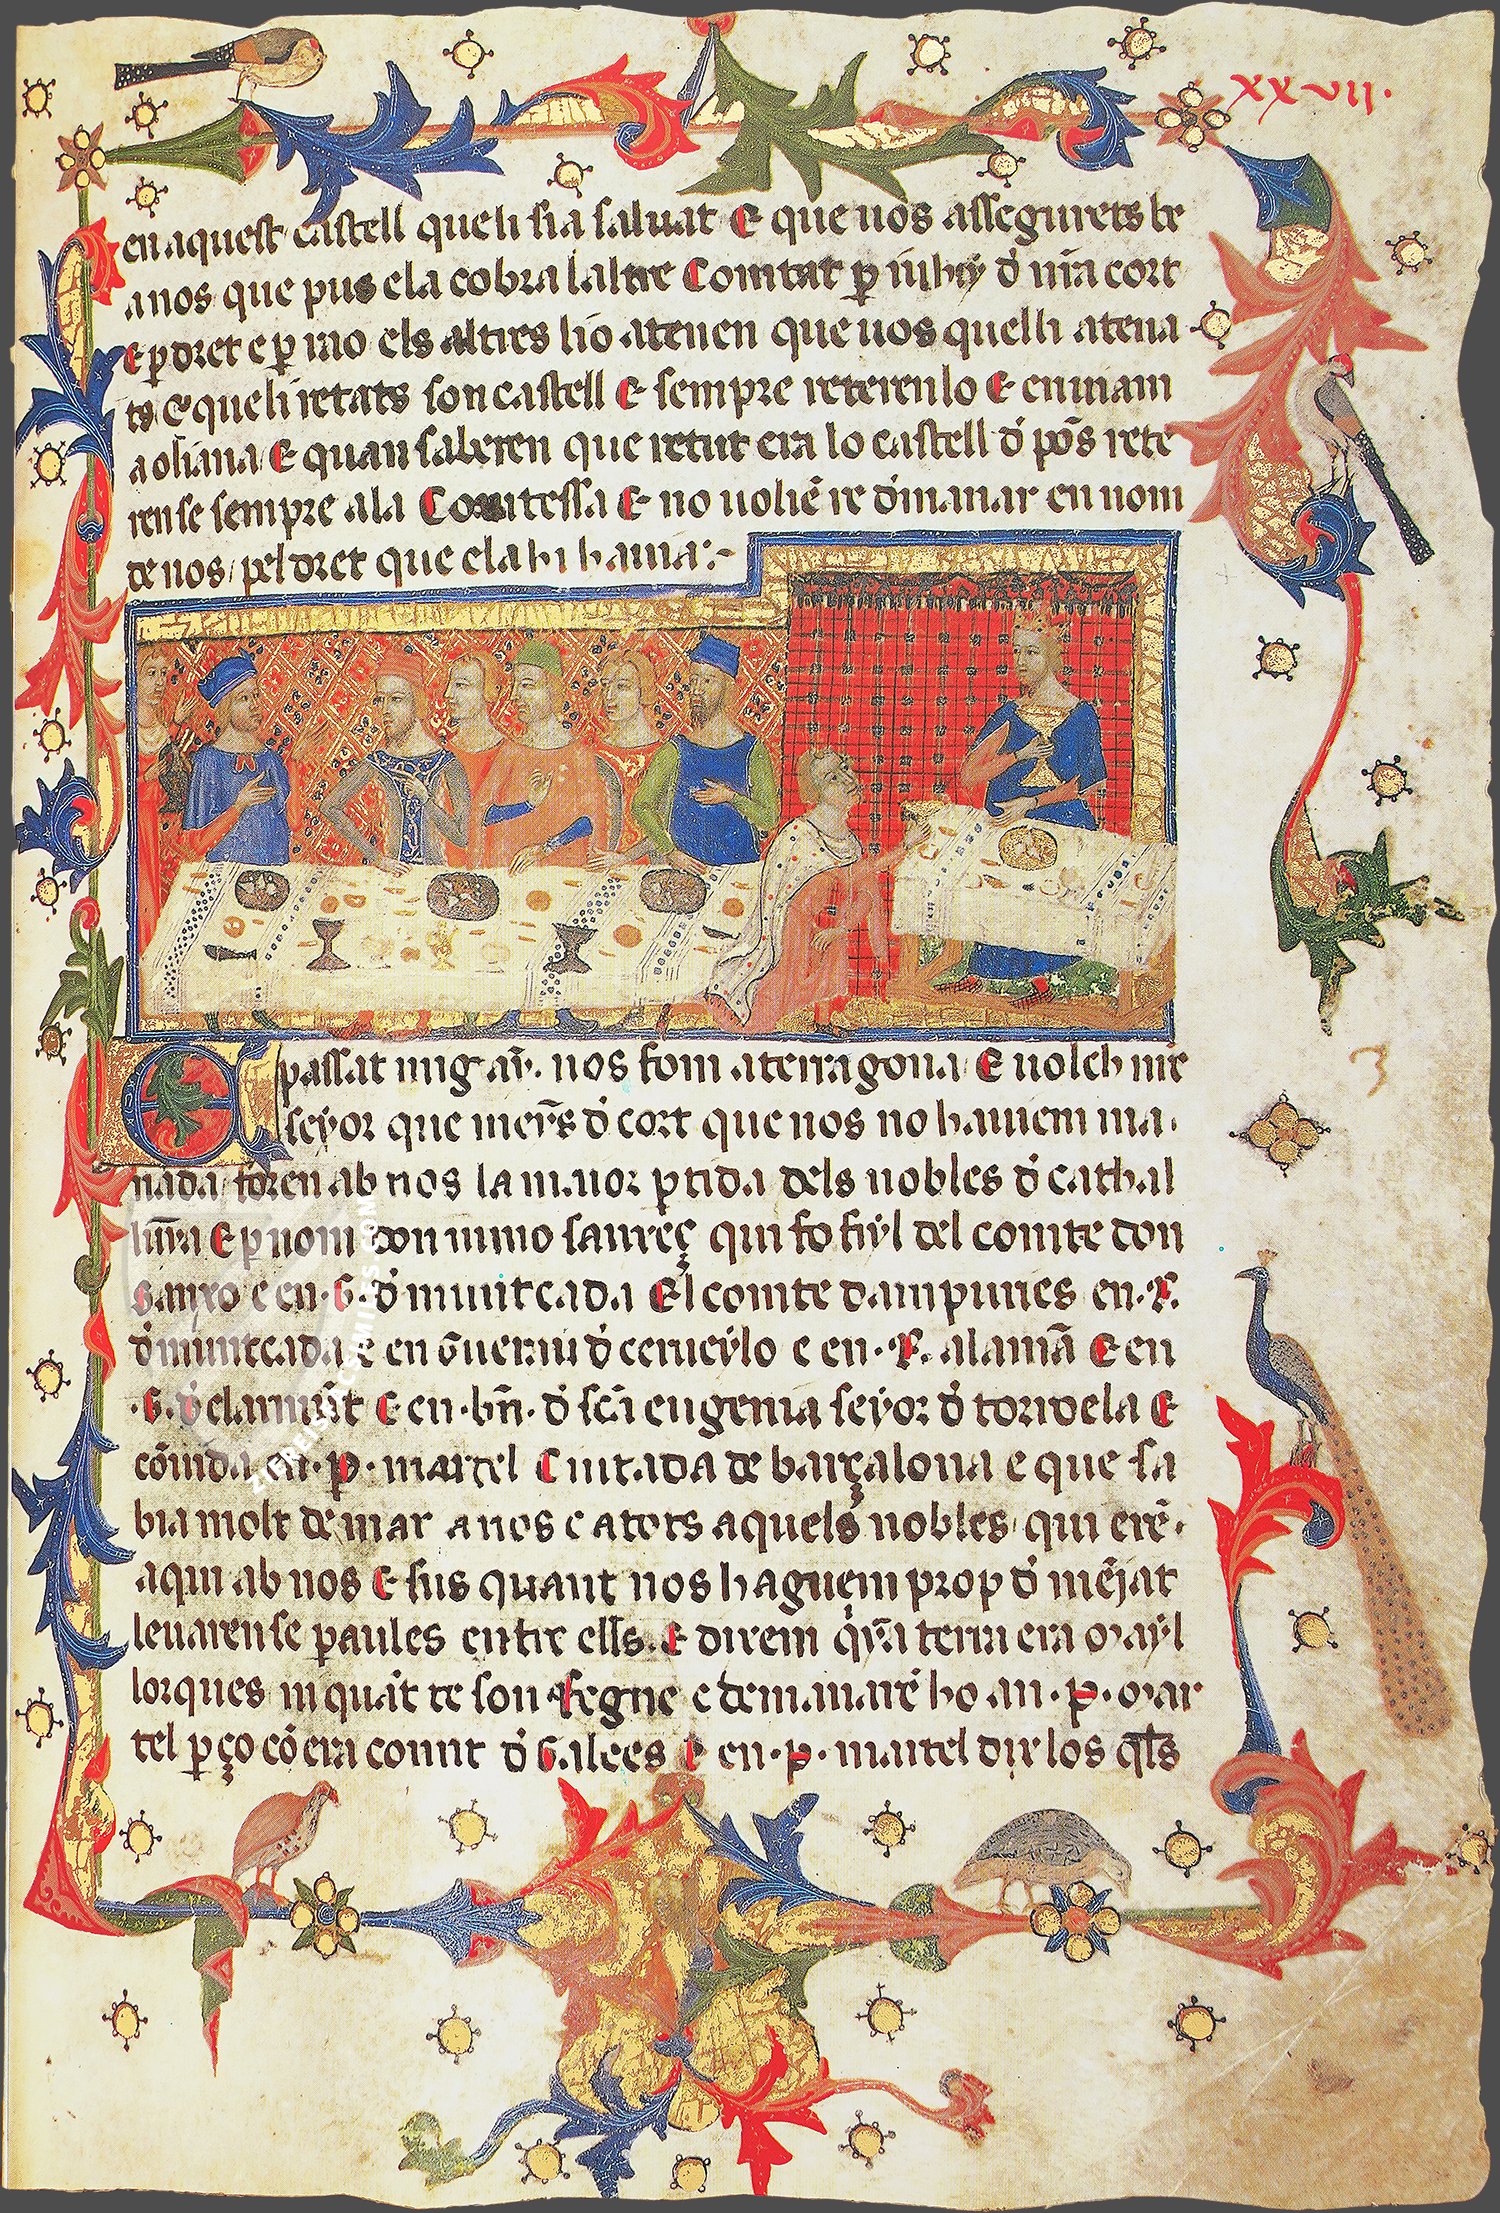 xxvii.
en aquest castell que li sia saluat E que uos assegurets be
a nos que pus ela cobra laltre Comtat p iuhij d̄ n̄ra cort
E p dret e p rao els altres lio atenen que uos quelli atena
ts e queli retats son castell E sempre reterenlo E enuiam
a oliana E quan saberen que retut era lo castell d̄ pōs rete
rense sempre ala Comtessa E no uoliē re d̄manar en nom
de nos pel dret que ela hi hauia:~
E passat mig ay. nos fom a terragona E uolch nr̄e
seyor que meȳs d̄ cort que nos no hauiem ma.
nada foren ab nos la maior ptida dels nobles d̄ cathal
lun̄ya E p nom don nuno sanxeç qui fo fiyl del comte don
sanxo e en .G. d̄ muntcada El comte dampuries en .R.
d̄ muntcada e en Gueraü d̄ cerueylo e en .R. alamā E en
.G. d̄ claramūt E en .bn̄. d̄ sc̄a eugenia seyor d̄ torroela E
cōuidā en .p. martel Ciutada de barçalona e que sa
bia molt de mar a nos e a tots aquels nobles qui erē.
aqui ab nos E sus quant nos haguem prop d̄ mējat
leuarense paules entre ells. E dixem q̄yna terra era Mayl
lorques ni quāt te son Regne e demanarē ho an .p. Mar
tel p ço cō era comit d̄ Galees E en .p. martel dix los q̄ls
3
ZIEREIS FACSIMILES.COM